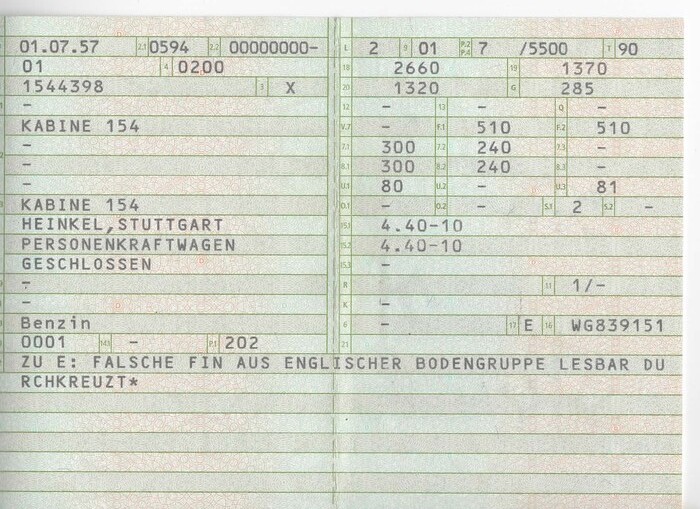 01.07.57 2.1 0594 2.2 00000000- L 2 9 01 P.2 P.4 7 /5500 T 90
01 4 0200 18 2660 19 1370
1544398 3 X 20 1320 G 285
- 12 - 13 - Q -
KABINE 154 V.7 - F.1 510 F.2 510
- 7.1 300 7.2 240 7.3 -
- 8.1 300 8.2 240 8.3 -
- U.1 80 U.2 - U.3 81
KABINE 154 O.1 - O.2 - S.1 2 S.2 -
HEINKEL,STUTTGART 15.1 4.40-10
PERSONENKRAFTWAGEN 15.2 4.40-10
GESCHLOSSEN 15.3 -
- R 11 1/-
- K -
Benzin 6 - 17 E 16 WG839151
0001 14.1 - P.1 202 21
ZU E: FALSCHE FIN AUS ENGLISCHER BODENGRUPPE LESBAR DU
RCHKREUZT*